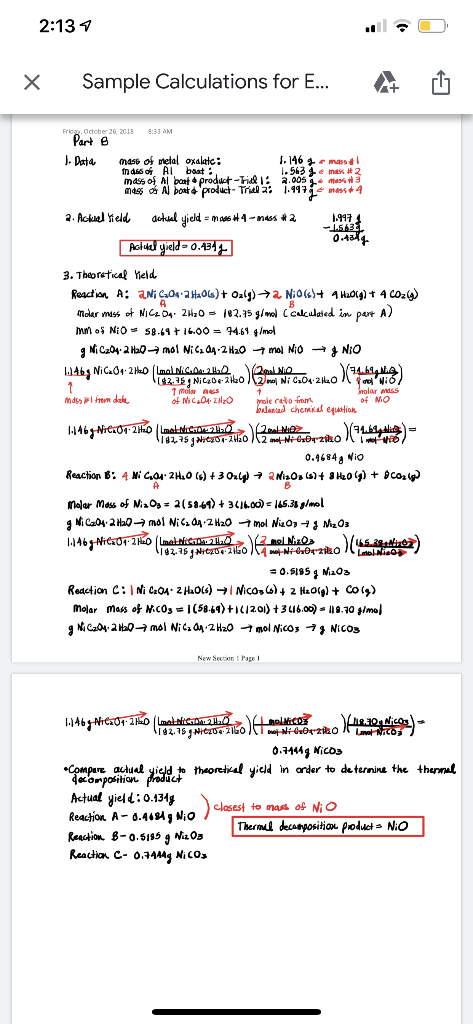 2:13
Sample Calculations for E...
Friday, October 26, 2018 8:33 AM
Part B
1. Data mass of metal oxalate: 1.146 g ← mass #1
mass of Al boat: 1.563 g ← mass #2
mass of Al boat & product - Trial 1: 2.005 g ← mass #3
mass of Al boat & product - Trial 2: 1.997 g ← mass #4
2. Actual Yield actual yield = mass #4 - mass #2 1.997 g
- 1.563 g
0.434 g
Actual yield = 0.434 g
3. Theoretical Yield
Reaction A: 2 NiC₂O₄·2H₂O(s) + O₂(g) → 2 NiO(s) + 4 H₂O(g) + 4 CO₂(g)
A B
Molar mass of NiC₂O₄·2H₂O = 182.75 g/mol (calculated in part A)
mm of NiO = 58.69 + 16.00 = 74.69 g/mol
g NiC₂O₄·2H₂O → mol NiC₂O₄·2H₂O → mol NiO → g NiO
1.146 g NiC₂O₄·2H₂O (1 mol NiC₂O₄·2H₂O / 182.75 g NiC₂O₄·2H₂O)(2 mol NiO / 2 mol NiC₂O₄·2H₂O)(74.69 g NiO / 1 mol NiO)
↑ mass #1 from data ↑ molar mass of NiC₂O₄·2H₂O ↑ mole ratio from balanced chemical equation ↑ molar mass of NiO
1.146 g NiC₂O₄·2H₂O (1 mol NiC₂O₄·2H₂O / 182.75 g NiC₂O₄·2H₂O)(2 mol NiO / 2 mol NiC₂O₄·2H₂O)(74.69 g NiO / 1 mol NiO) =
0.4684 g NiO
Reaction B: 4 NiC₂O₄·2H₂O (s) + 3 O₂(g) → 2 Ni₂O₃ (s) + 8 H₂O (g) + 8 CO₂ (g)
A B
Molar Mass of Ni₂O₃ = 2(58.69) + 3(16.00) = 165.38 g/mol
g NiC₂O₄·2H₂O → mol NiC₂O₄·2H₂O → mol Ni₂O₃ → g Ni₂O₃
1.146 g NiC₂O₄·2H₂O (1 mol NiC₂O₄·2H₂O / 182.75 g NiC₂O₄·2H₂O)(2 mol Ni₂O₃ / 4 mol NiC₂O₄·2H₂O)(165.38 g Ni₂O₃ / 1 mol Ni₂O₃)
= 0.5185 g Ni₂O₃
Reaction C: 1 NiC₂O₄·2H₂O(s) → 1 NiCO₃(s) + 2 H₂O(g) + CO(g)
Molar Mass of NiCO₃ = 1(58.69) + 1(12.01) + 3(16.00) = 118.70 g/mol
g NiC₂O₄·2H₂O → mol NiC₂O₄·2H₂O → mol NiCO₃ → g NiCO₃
New Section 1 Page 1
1.146 g NiC₂O₄·2H₂O (1 mol NiC₂O₄·2H₂O / 182.75 g NiC₂O₄·2H₂O)(1 mol NiCO₃ / 1 mol NiC₂O₄·2H₂O)(118.70 g NiCO₃ / 1 mol NiCO₃) =
0.7444 g NiCO₃
•Compare actual yield to theoretical yield in order to determine the thermal
decomposition product
Actual yield: 0.434g
Reaction A - 0.4684 g NiO
closest to mass of NiO
Reaction B - 0.5185 g Ni₂O₃
Thermal decomposition product = NiO
Reaction C - 0.7444g NiCO₃